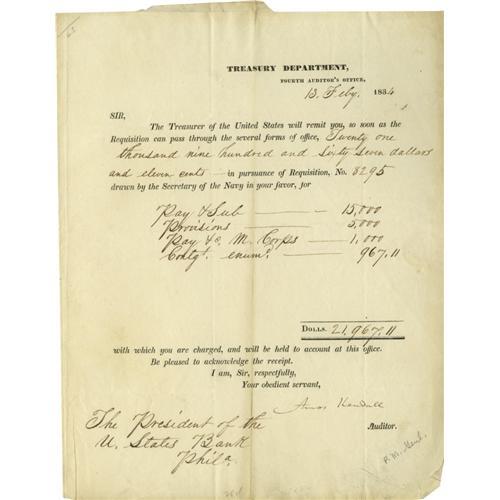 TREASURY DEPARTMENT,
FOURTH AUDITOR'S OFFICE,
13 Feby. 1834
SIR,
The Treasurer of the United States will remit you, so soon as the
Requisition can pass through the several forms of office, Twenty one
thousand nine hundred and sixty seven dollars
and eleven cents — in pursuance of Requisition, No. 3295
drawn by the Secretary of the Navy in your favor, for
Pay & Sub — 15,000
Provisions — 5,000
Pay &c. M. Corps — 1,000
Contgt. enumd. — 967.11
DOLLS. 21,967.11
with which you are charged, and will be held to account at this office.
Be pleased to acknowledge the receipt.
I am, Sir, respectfully,
Your obedient servant,
Amos Kendall
Auditor.
The President of the
U. States Bank
Phila.